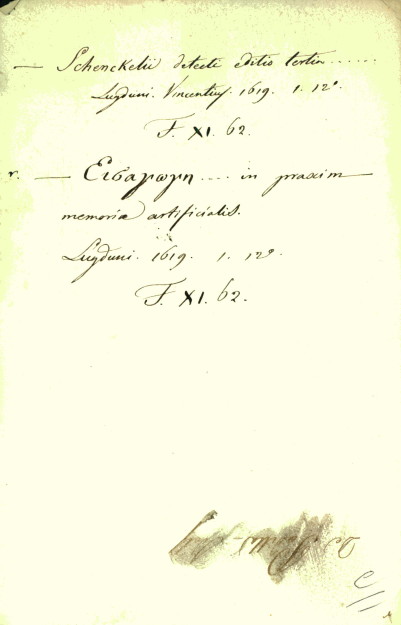 — Schenckelii detecti editio tertia ......
Lugduni. Vincentius. 1619. 1. 12°.
F. XI. 62.
r. — Εισαγωγη .... in praxim
memoriæ artificialis.
Lugduni. 1619. 1. 12°.
F. XI. 62.